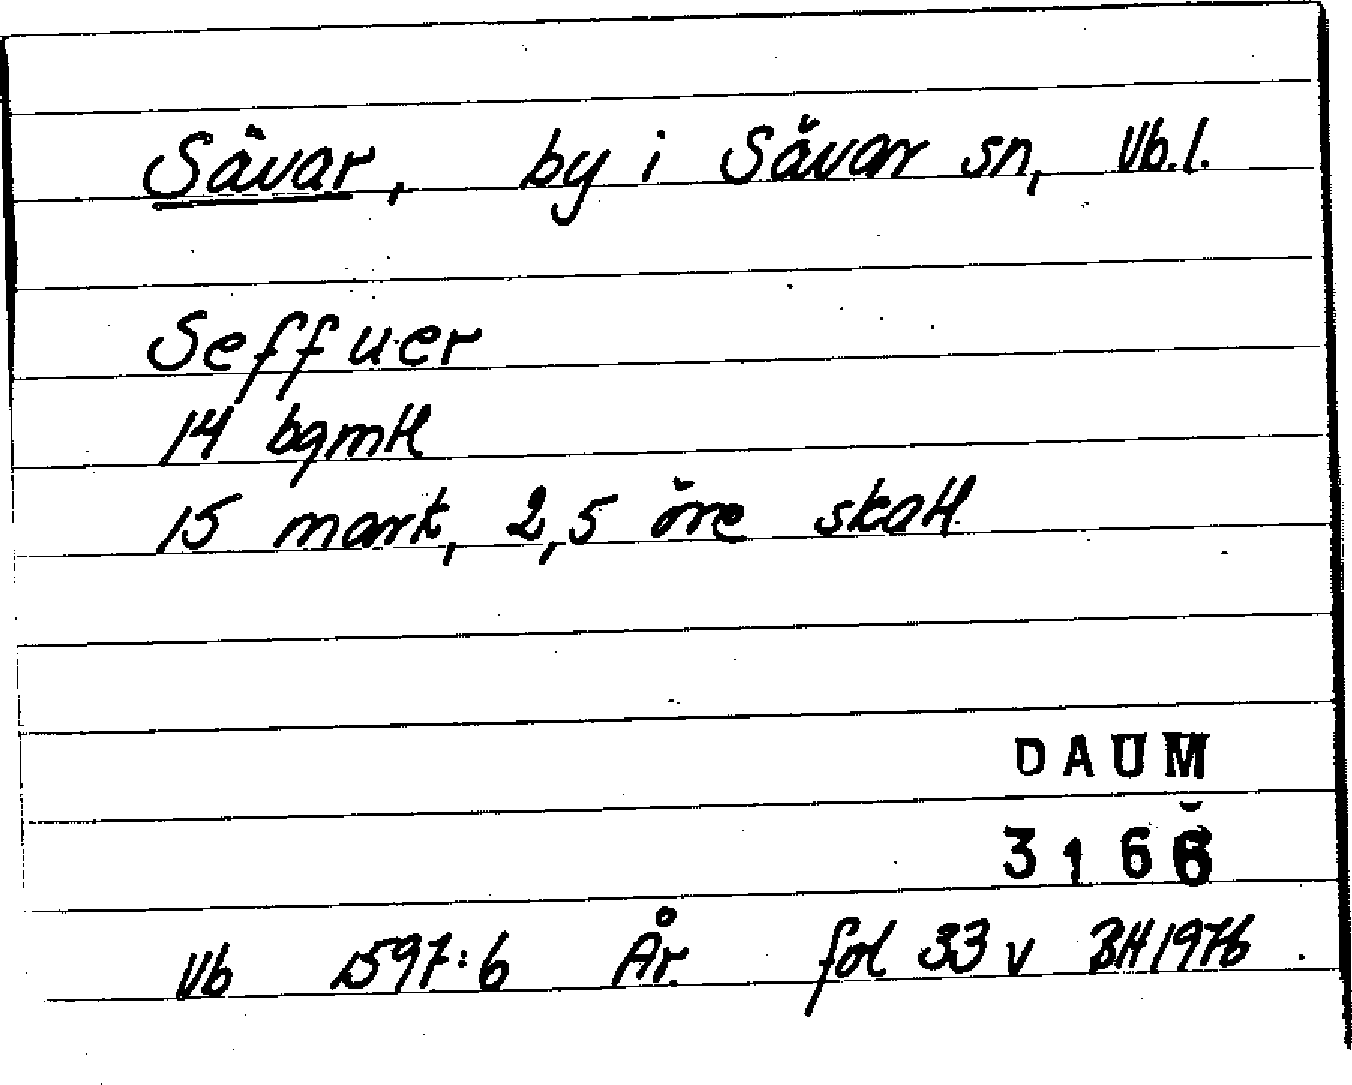 Sävar, by i Sävar sn, Vb.l.
Seffuer
14 bgmtl
15 mark, 2,5 öre skatt
DAUM
3166
Vb 1597:6 År. fol 33 v BH 1976